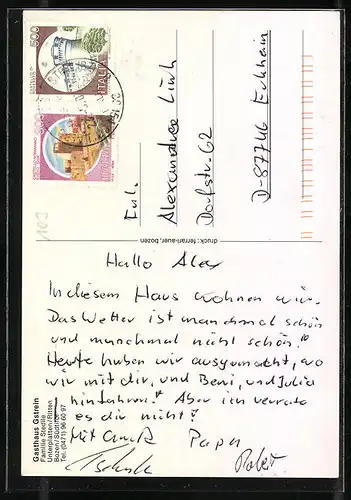 Hallo Alex
In diesem Haus wohnen wir.
Das Wetter ist manchmal schön
und manchmal nicht schön!
Heute haben wir ausgemacht, wo
wir mit dir, und Beni, und Julia
hinfahren! Aber ich verrate
es dir nicht!
Mit Gruß Papa
Frl.
Alexandra
Dorfstr. 62
D-87746 Erkheim
druck: ferrari-auer, bozen
Gasthaus Gstrein
Familie Stedile
Unterplatten/Ritten
Bozen/Südtirol
Tel. (0471) 96 60 97
500
ITALIA
103